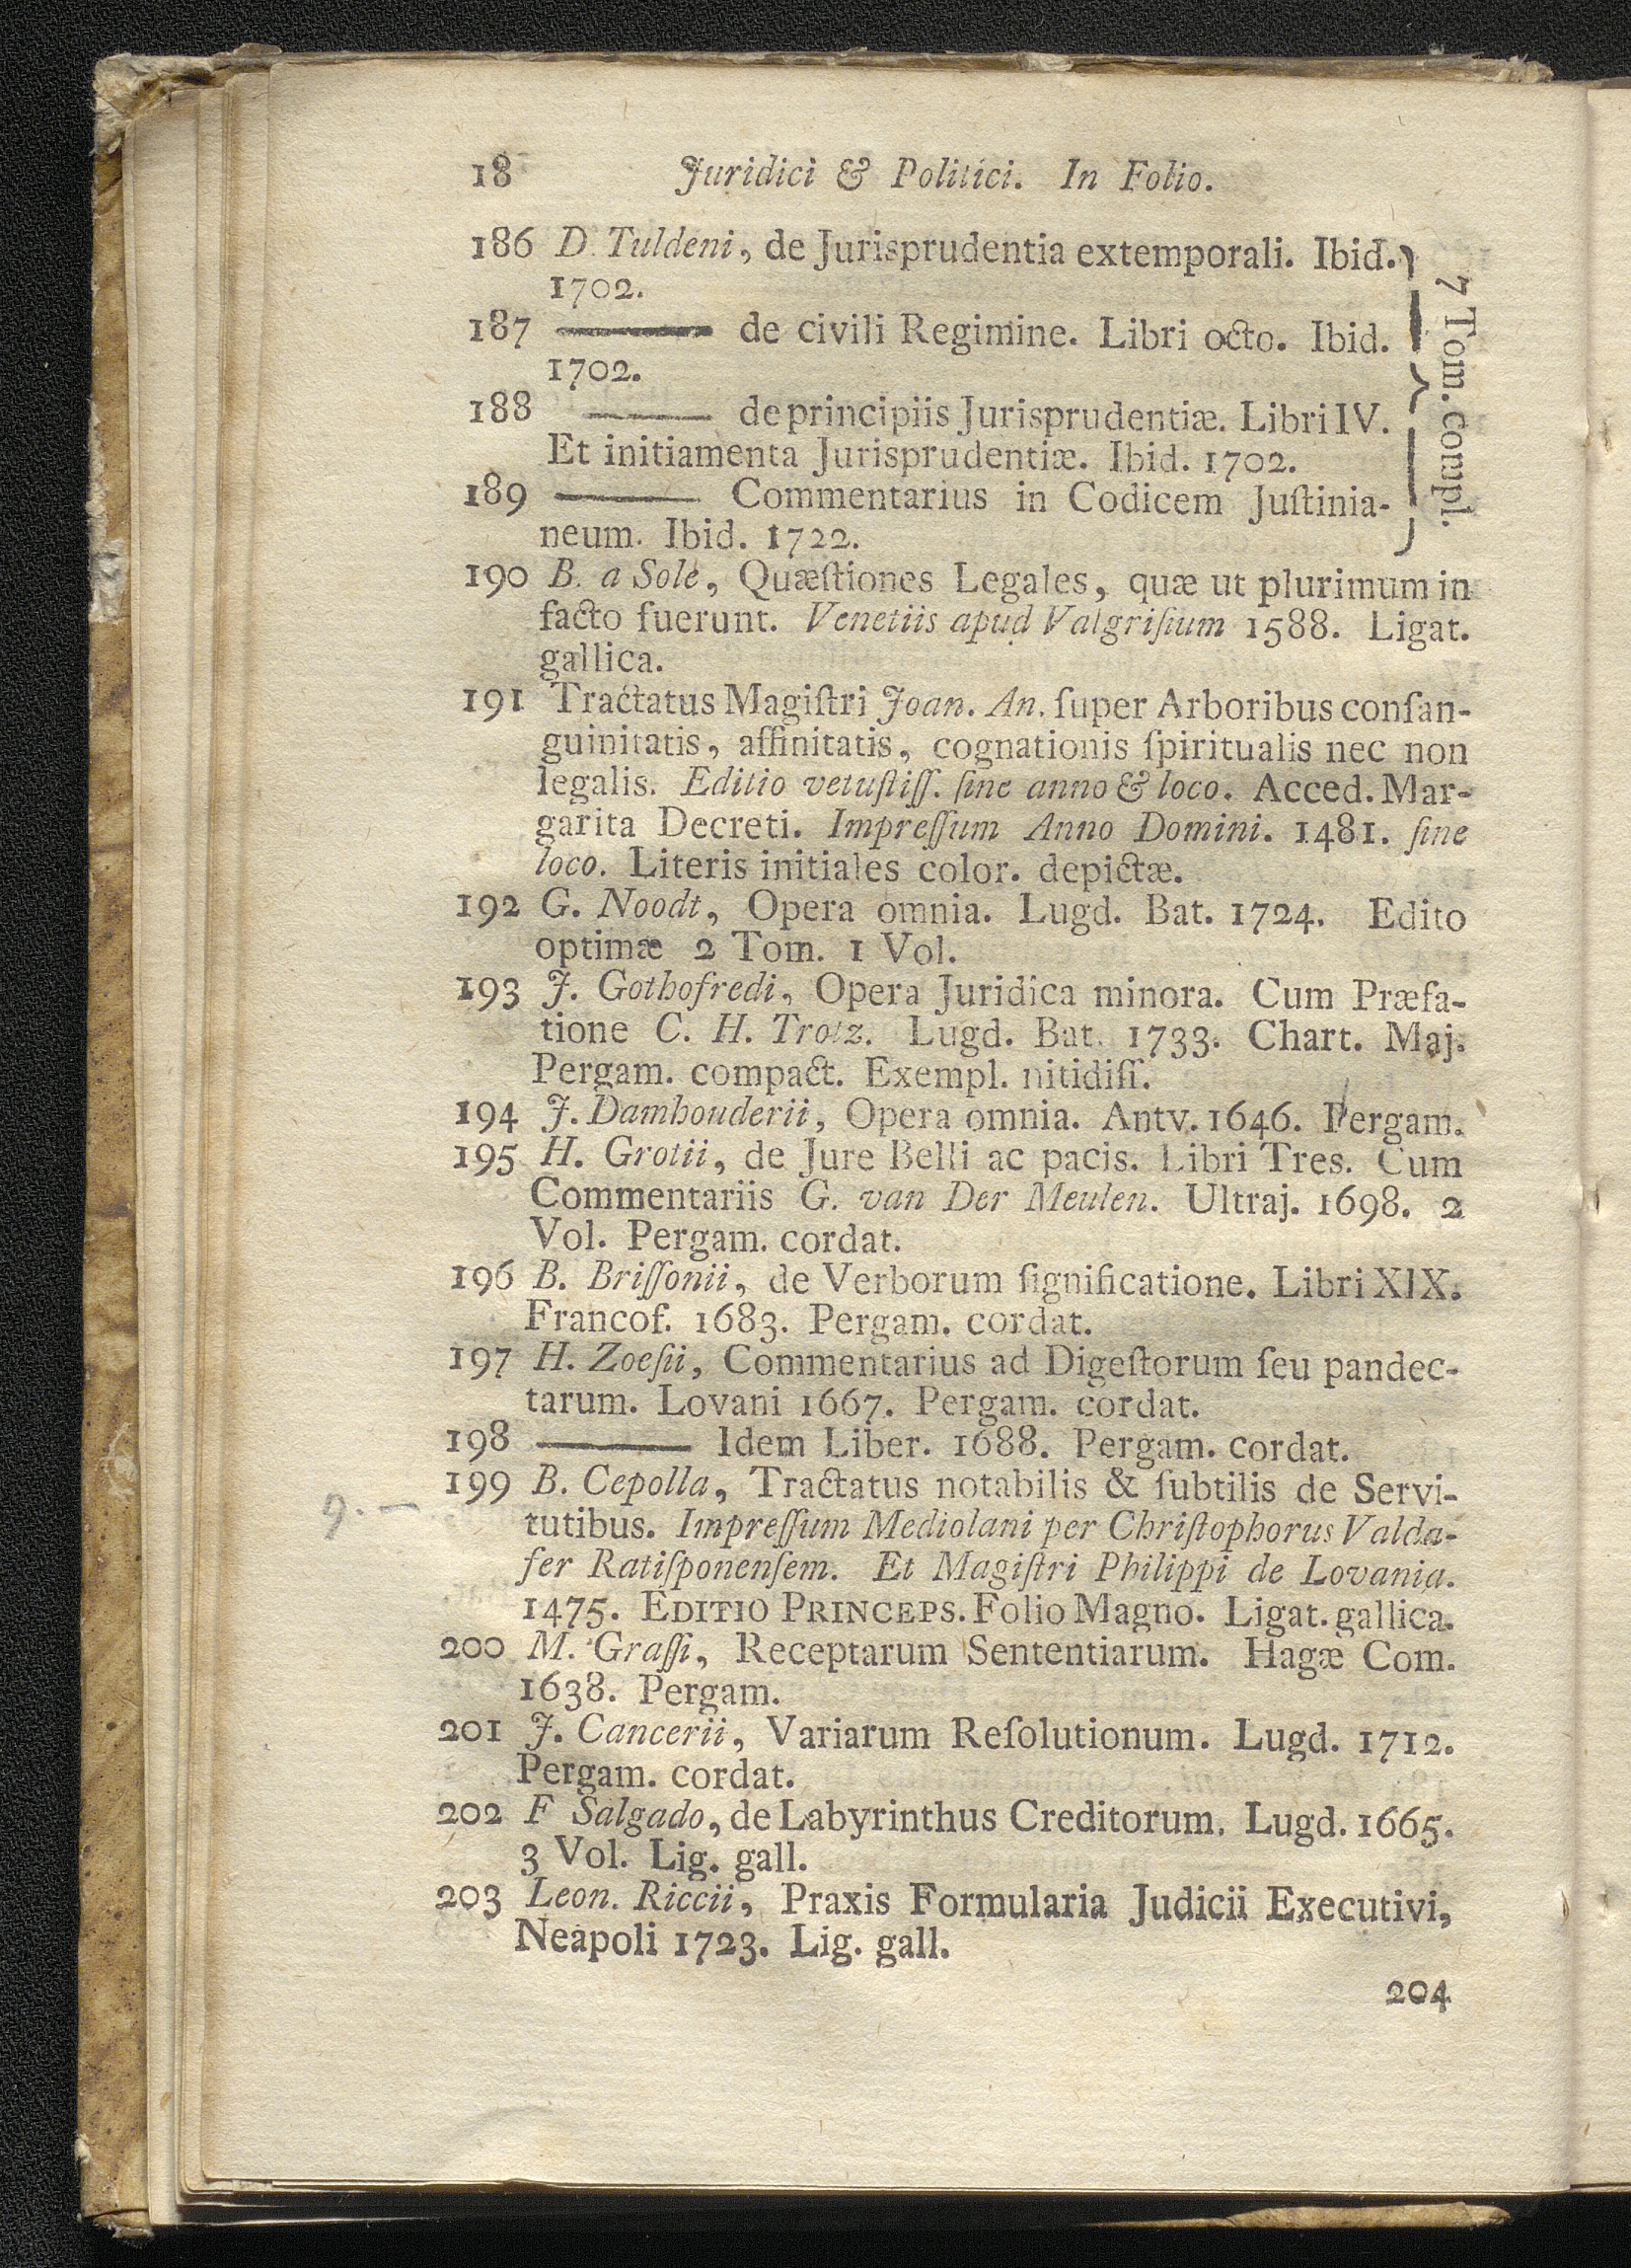 18 Juridici & Politici. In Folio.
186 D. Tuldeni, de Jurisprudentia extemporali. Ibid.
1702.
187 ——— de civili Regimine. Libri octo. Ibid.
1702.
188 ——— de principiis Jurisprudentiæ. Libri IV.
Et initiamenta Jurisprudentiæ. Ibid. 1702.
189 ——— Commentarius in Codicem Juſtinia-
neum. Ibid. 1722.
7 Tom. compl.
190 B. a Sole, Quæſtiones Legales, quæ ut plurimum in
facto fuerunt. Venetiis apud Valgriſium 1588. Ligat.
gallica.
191 Tractatus Magiſtri Joan. An. ſuper Arboribus conſan-
guinitatis, affinitatis, cognationis ſpiritualis nec non
legalis. Editio vetuſtiſſ. ſine anno & loco. Acced. Mar-
garita Decreti. Impreſſum Anno Domini. 1481. ſine
loco. Literis initiales color. depictæ.
192 G. Noodt, Opera omnia. Lugd. Bat. 1724. Edito
optimæ 2 Tom. 1 Vol.
193 J. Gothofredi, Opera Juridica minora. Cum Præfa-
tione C. H. Trotz. Lugd. Bat. 1733. Chart. Maj.
Pergam. compact. Exempl. nitidiſſ.
194 J. Damhouderii, Opera omnia. Antv. 1646. Pergam.
195 H. Grotii, de Jure Belli ac pacis. Libri Tres. Cum
Commentariis G. van Der Meulen. Ultraj. 1698. 2
Vol. Pergam. cordat.
196 B. Briſſonii, de Verborum ſignificatione. Libri XIX.
Francof. 1683. Pergam. cordat.
197 H. Zoeſii, Commentarius ad Digeſtorum ſeu pandec-
tarum. Lovani 1667. Pergam. cordat.
198 ——— Idem Liber. 1688. Pergam. cordat.
199 B. Cepolla, Tractatus notabilis & ſubtilis de Servi-
9. —
tutibus. Impreſſum Mediolani per Chriſtophorus Valda-
fer Ratiſponenſem. Et Magiſtri Philippi de Lovania.
1475. EDITIO PRINCEPS. Folio Magno. Ligat. gallica.
200 M. Graſſi, Receptarum Sententiarum. Hagæ Com.
1638. Pergam.
201 J. Cancerii, Variarum Reſolutionum. Lugd. 1712.
Pergam. cordat.
202 F Salgado, de Labyrinthus Creditorum. Lugd. 1665.
3 Vol. Lig. gall.
203 Leon. Riccii, Praxis Formularia Judicii Executivi,
Neapoli 1723. Lig. gall.
204